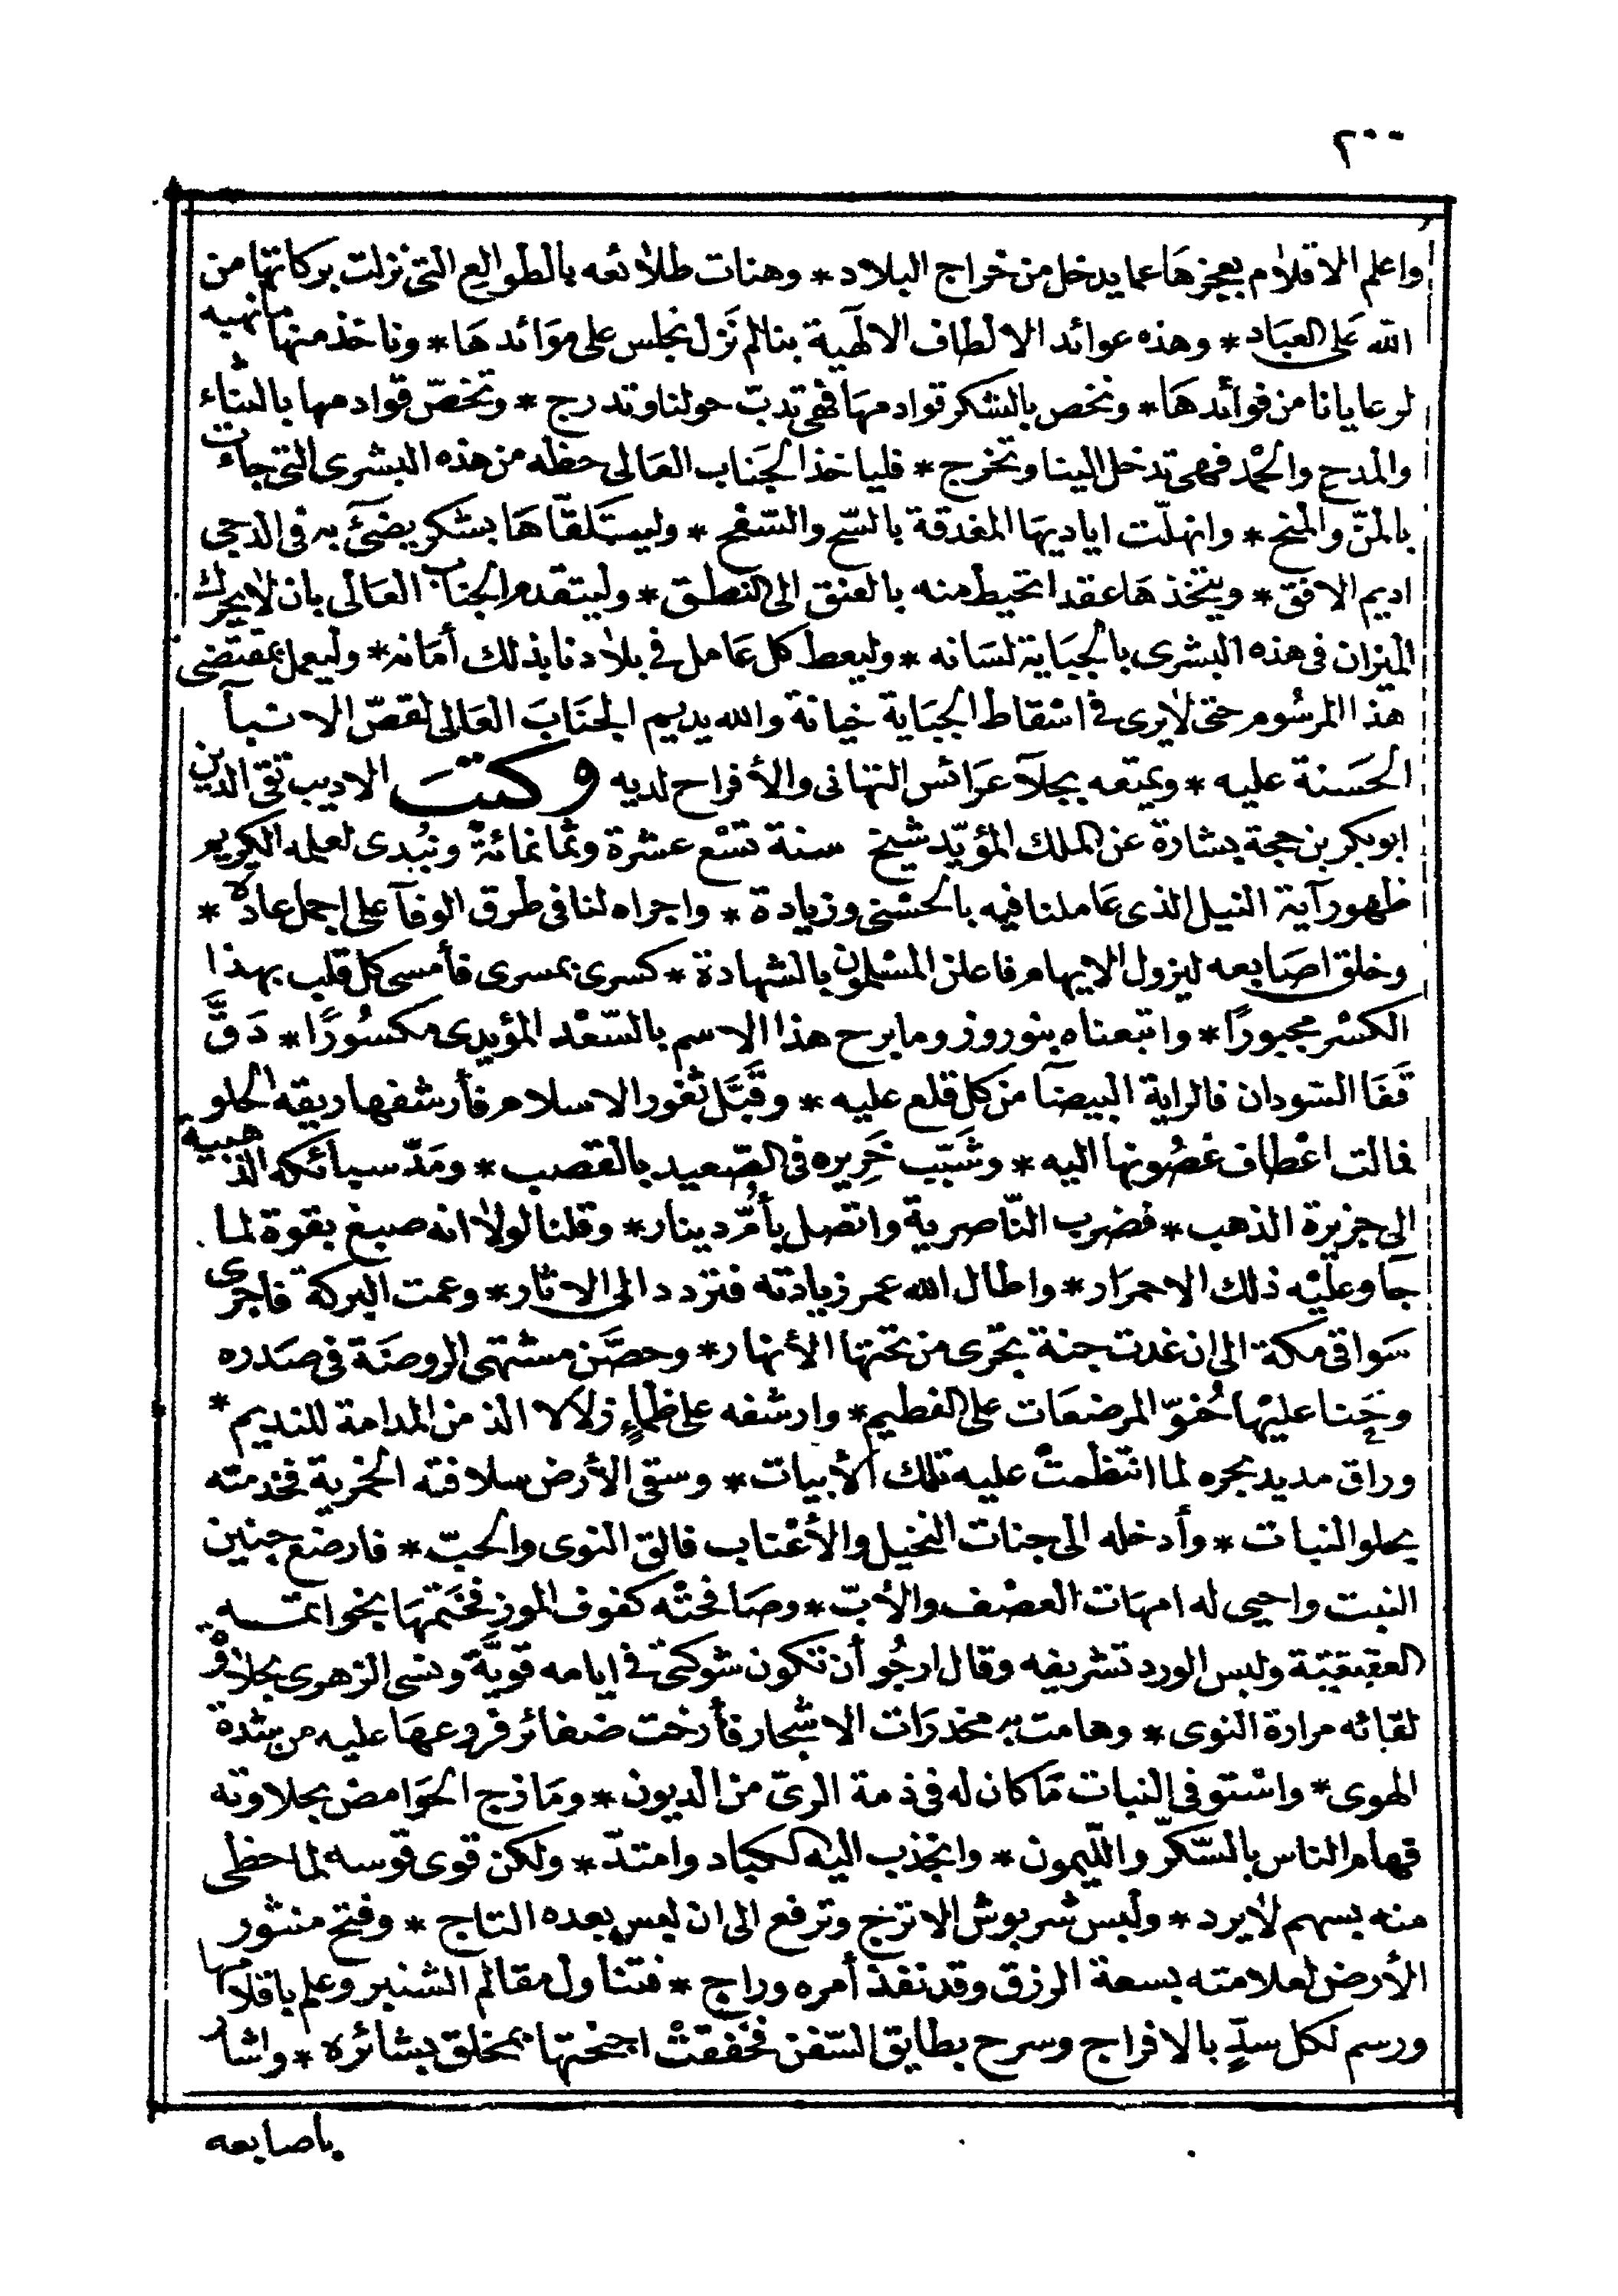 ٢٠٠
واعلم الاقلام بعجزها عما يدخل من خراج البلاد * وهنات طلائعه بالطوالع التى نزلت بركاتها من
الله على العباد * وهذه عوائد الالطاف الالهية بنا لم نزل نجلس على موائدها * وناخذ منها ما نهبه
لرعايانا من فوائدها * ونخص بالشكر قوادمها فهى تدبّ حولنا وتدرج * ونخصّ قوادمها بالثناء
والمدح والحمد فهى تدخل الينا وتخرج * فلياخذ الجناب العالى حظه من هذه البشرى التى جاءت
بالمنّ والمنح * وانهلّت اياديها المغدقة بالسّح والسّفح * وليتلقّاها بشكر يضئ به فى الدجى
اديم الافق * ويتخذها عقدا تحيط منه بالعنق الى النطق * وليتقدم الجناب العالى بان لا يحرك
الميزان فى هذه البشرى بالجباية لسانه * وليعط كل عامل فى بلادنا بذلك أمانه * وليعمل بمقتضى
هذا المرسُوم حتى لا يرى فى اسْقاط الجباية خيانة والله يديم الجنابَ العالى لقصّ الانبآ
الحسنة عليه * ويمتعه بجلآ عرائس التهانى والأفراح لديه وكتب الاديب تقى الدين
ابوبكر بن حجة بشارة عن الملك المؤيّد شيخ سنة تسْع عشرة وثمانمائة ونُبدى لعلمه الكريم
ظهور آية النيل الذى عاملنا فيه بالحسْنى وزيادة * واجراه لنا فى طرق الوفآ على اجمل عادة *
وخلق اصابعه ليزول الايهام فاعلن المسْلمون بالشهادة * كسرى بمسرى فأمسى كل قلب بهذا
الكسْر مجبورًا * واتبعناه بنوروز وما برح هذا الاسم بالسّعْد المؤيدى مكسُورًا * دَقَّ
قَفَا السودان فالراية البيضآ من كل قلع عليه * وقَبَّل ثغور الاسلام فأرشفها ريقه الحلو
فمالت اعْطاف غصُونها اليه * وشَبّب خَرِيره فى الصّعيد بالقصب * ومَدّ سبائكه الذهبية
الى جزيرة الذهب * فضرب النّاصرية واتصل بأُمّ دينار * وقلنا لولا انه صبغ بقوة لما
جآ وعليْه ذلك الاحمرار * واطال الله عمر زيادته فتردد الى الاثار * وعمت البركة فاجرى
سَواقى مكة الى ان غدت جنة تجْرى من تحتها الأنهار * وحصَّن مشتهى الروضة فى صدره
وحَنا عليْها حُنوّ المرضعات على الفطيم * وارشفه على ظمإٍ زلالا الذ من المدامة للنديم *
وراق مديد بحره لما انتظمتْ عليه تلك الأبيات * وسقى الأرض سلافته الخمرية فخدمته
بحلو النبات * وأدخله الى جنات النخيل والأعْناب فالق النوى والحبّ * فارضع جنين
النبت واحيى له امهات العصْف والأبّ * وصَافحتْه كفوف الموز فختمها بخواتمه
العقيقية ولبس الورد تشريفه وقال ارجُو أن تكون شوكتى فى ايامه قويَّة ونسى الزهر بحلاوة
لقائه مرارة النوى * وهامت به مخدرَات الاشجار فأرخت ضفائر فروعها عليه من شدة
الهوى * واسْتوفى النبات مَا كان له فى ذمة الرىّ من الديون * ومَازج الحَوامض بحلاوته
فهام الناس بالسّكّر واللّيمون * وانجذب اليه الكباد وامتدّ * ولكن قوى قوسه لما حظى
منه بسهم لا يرد * ولبس شربوش الاترج وترفع الى ان لبس بعده التاج * وفتح منثور
الأرض لعلامته بسعة الرزق وقد نفذ أمره وراج * فتناول مقالم الشنبر وعلم باقلامها
ورسم لكل سدٍّ بالافراج وسرح بطايق السّفن فخفقتْ اجنحتها بمخلق بشائره * واشار
باصابعه